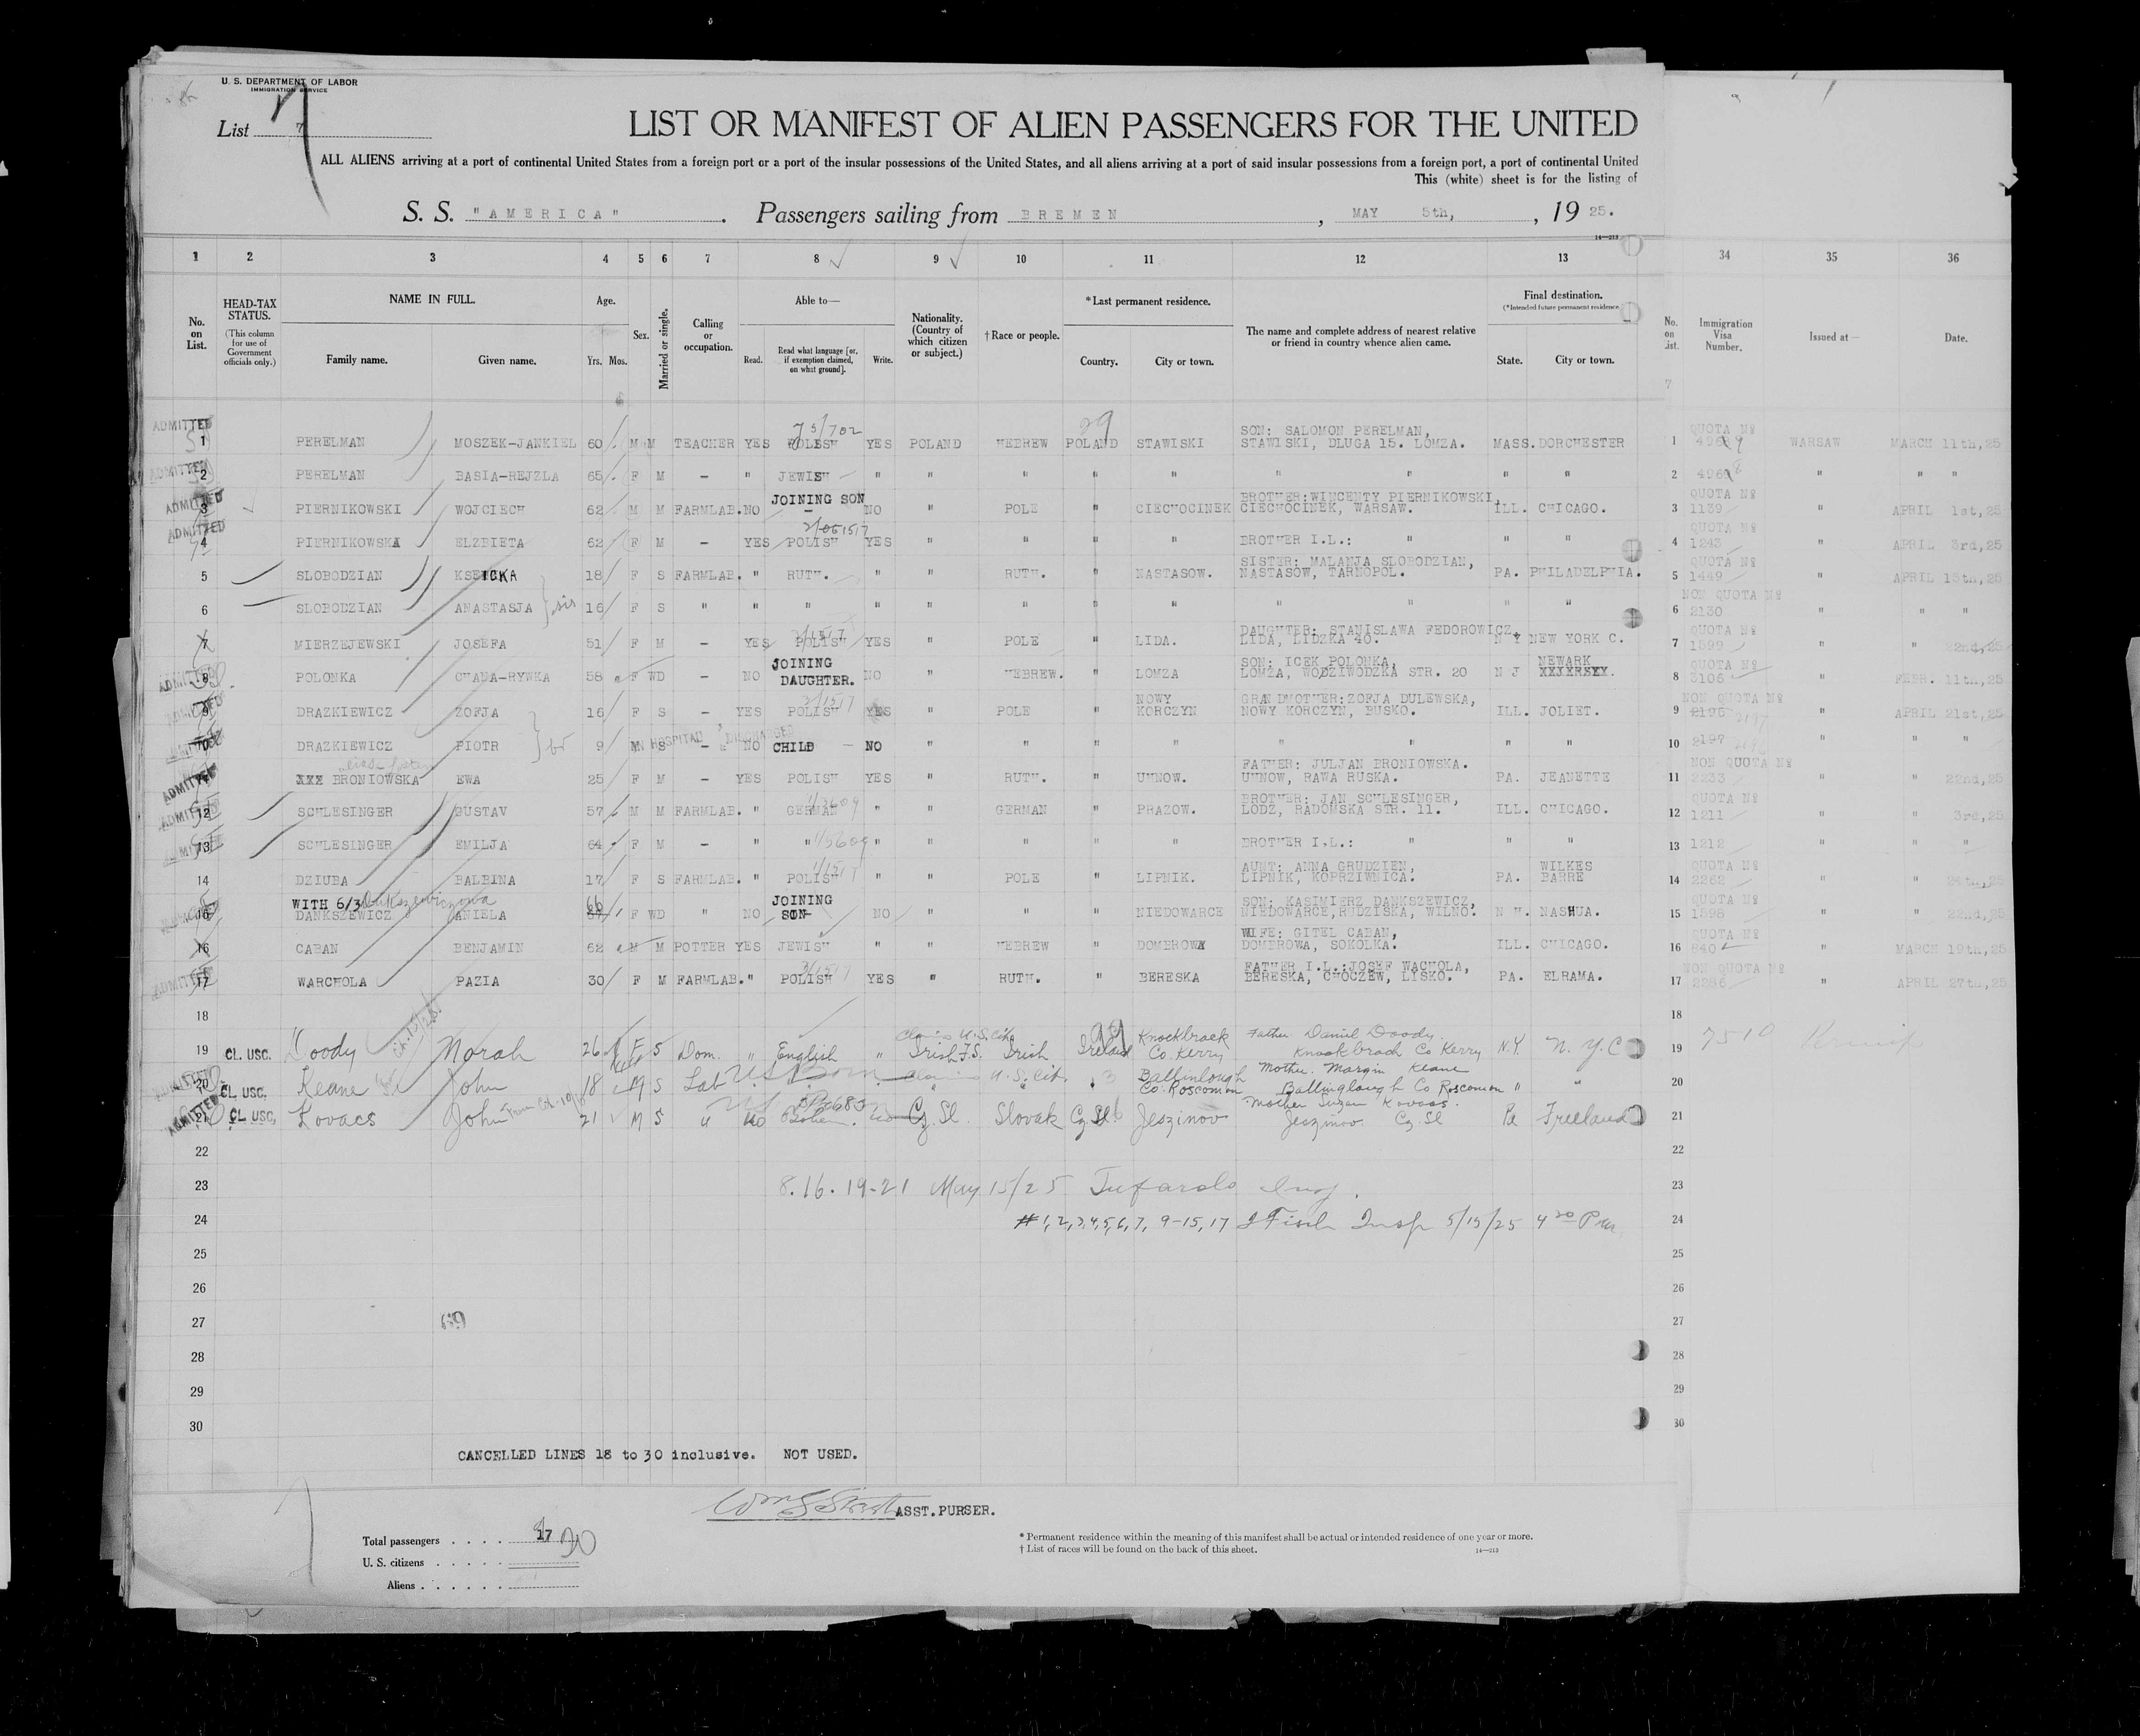 U. S. DEPARTMENT OF LABOR
IMMIGRATION SERVICE
List 7
LIST OR MANIFEST OF ALIEN PASSENGERS FOR THE UNITED
ALL ALIENS arriving at a port of continental United States from a foreign port or a port of the insular possessions of the United States, and all aliens arriving at a port of said insular possessions from a foreign port, a port of continental United
This (white) sheet is for the listing of
S. S. "AMERICA". Passengers sailing from BREMEN, MAY 5th, 1925.
14—213
1 2 3 4 5 6 7 8 9 10 11 12 13 34 35 36
No. on List.
HEAD-TAX STATUS. (This column for use of Government officials only.)
NAME IN FULL. Family name. Given name.
Age. Yrs. Mos.
Sex.
Married or single.
Calling or occupation.
Able to— Read. Read what language [or, if exemption claimed, on what ground]. Write.
Nationality. (Country of which citizen or subject.)
†Race or people.
*Last permanent residence. Country. City or town.
The name and complete address of nearest relative or friend in country whence alien came.
Final destination. (*Intended future permanent residence) State. City or town.
No. on List. Immigration Visa Number. Issued at— Date.
ADMITTED 1 PERELMAN MOSZEK-JANKIEL 60 M M TEACHER YES POLISH YES POLAND HEBREW POLAND STAWISKI SON: SALOMON PERELMAN, STAWISKI, DLUGA 15. LOMZA. MASS. DORCHESTER 1 QUOTA Nº WARSAW MARCH 11th, 25
ADMITTED 2 PERELMAN BASIA-REJZLA 65 F M - " JEWISH " " " " " " " " " 2 " " "
ADMITTED 3 PIERNIKOWSKI WOJCIECH 62 M M FARMLAB. NO JOINING SON - NO " POLE " CIECHOCINEK BROTHER: WINCENTY PIERNIKOWSKI, CIECHOCINEK, WARSAW. ILL. CHICAGO. 3 QUOTA Nº 1139 " APRIL 1st, 25
ADMITTED 4 PIERNIKOWSKA ELZBIETA 62 F M - YES POLISH YES " " " " BROTHER I.L.: " " " 4 QUOTA Nº 1243 " APRIL 3rd, 25
5 SLOBODZIAN 18 F S FARMLAB. " RUTH. " " RUTH. " NASTASOW. SISTER: MALANJA SLOBODZIAN, NASTASOW, TARNOPOL. PA. PHILADELPHIA. 5 QUOTA Nº 1449 " APRIL 15th, 25
6 SLOBODZIAN ANASTASJA sis 16 F S " " " " " " " " " " " " 6 NON QUOTA Nº 2130 " " "
7 MIERZEJEWSKI JOSEFA 51 F M - YES POLISH YES " POLE " LIDA. DAUGHTER: STANISLAWA FEDOROWICZ, LIDA, LIDZKA 40. N Y NEW YORK C. 7 QUOTA Nº 1599 " " 22nd, 25
ADMITTED 8 POLONKA CHANA-RYWKA 58 F WD - NO JOINING DAUGHTER. NO " HEBREW. " LOMZA SON: ICEK POLONKA, LOMZA, WODZIWODZKA STR. 20 N J NEWARK 8 QUOTA Nº 3106 " FEBR. 11th, 25
ADMITTED 9 DRAZKIEWICZ ZOFJA 16 F S - YES POLISH YES " POLE " NOWY KORCZYN GRANDMOTHER: ZOFJA DULEWSKA, NOWY KORCZYN, BUSKO. ILL. JOLIET. 9 NON QUOTA Nº 2196 2197 " APRIL 21st, 25
10 DRAZKIEWICZ PIOTR br 9 M S IN HOSPITAL DISCHARGED - NO CHILD - NO " " " " " " " " 10 2197 " " "
ADMITTED 11 XXX BRONIOWSKA EWA 25 F M - YES POLISH YES " RUTH. " UHNOW. FATHER: JULJAN BRONIOWSKA. UHNOW, RAWA RUSKA. PA. JEANETTE 11 NON QUOTA Nº 2233 " " 22nd, 25
ADMITTED 12 SCHLESINGER GUSTAV 57 M M FARMLAB. " GERMAN " " GERMAN " PRAZOW. BROTHER: JAN SCHLESINGER, LODZ, RADOMSKA STR. 11. ILL. CHICAGO. 12 QUOTA Nº 1211 " " 3rd, 25
ADMITTED 13 SCHLESINGER EMILJA 64 F M - " " " " " " " BROTHER I.L.: " " " 13 1212 " " "
14 DZIUBA BALBINA 17 F S FARMLAB. " POLISH " " POLE " LIPNIK. AUNT: ANNA GRUDZIEN, LIPNIK, KOPRZIWNICA. PA. WILKES BARRE 14 QUOTA Nº 2262 " " 24th, 25
WITH 6/3 DANKSZEWICZ ANIELA 66 F WD " NO JOINING SON NO " " " NIEDOWARCE SON: KASIMIERZ DANKSZEWICZ, NIEDOWARCE, RUDZISKA, WILNO. N H. NASHUA. 15 QUOTA Nº 1598 " " 22nd, 25
16 CABAN BENJAMIN 62 M M POTTER YES JEWISH " " HEBREW " DOMBROWA WIFE: GITEL CABAN, DOMBROWA, SOKOLKA. ILL. CHICAGO. 16 QUOTA Nº 840 " MARCH 19th, 25
ADMITTED 17 WARCHOLA PAZIA 30 F M FARMLAB. " POLISH YES " RUTH. " BERESKA FATHER I.L.: JOSEF WACHOLA, BERESKA, CHOCZEW, LISKO. PA. ELRAMA. 17 NON QUOTA Nº 2286 " APRIL 27th, 25
18 18
19 CL. USC. Doody Norah 26 F S Dom. " English " Claims U.S. Cit. Irish F.S. Irish Ireland Knockbrack Co. Kerry Father Daniel Doody. Knockbrack Co Kerry N.Y. N.Y.C 19 7510
ADMITTED 20 CL. USC. Keane John 18 M S Lab US Born Claims U.S. Cit. Ballinlough Co. Roscomon Mother. Margin Keane Ballinglough Co Roscomon " " 20
ADMITTED 21 CL. USC. Kovacs John 21 M S " no no Cz. Sl. Slovak Cz. Sl. Jeszinov Mother Suzan Kovacs. Jeszinov Cz. Sl Pa Freeland 21
22 22
23 8.16.19-21 May 15/25 Tufarolo Insp. 23
24 # 1, 2, 3, 4, 5, 6, 7, 9-15, 17 J Fisch Insp 5/15/25 4 30 Pm 24
25 25
26 26
27 69 27
28 28
29 29
30 30
CANCELLED LINES 18 to 30 inclusive. NOT USED.
ASST. PURSER.
Total passengers . . . . 17 20
U. S. citizens . . . . .
Aliens . . . . . .
* Permanent residence within the meaning of this manifest shall be actual or intended residence of one year or more.
† List of races will be found on the back of this sheet.
14—213